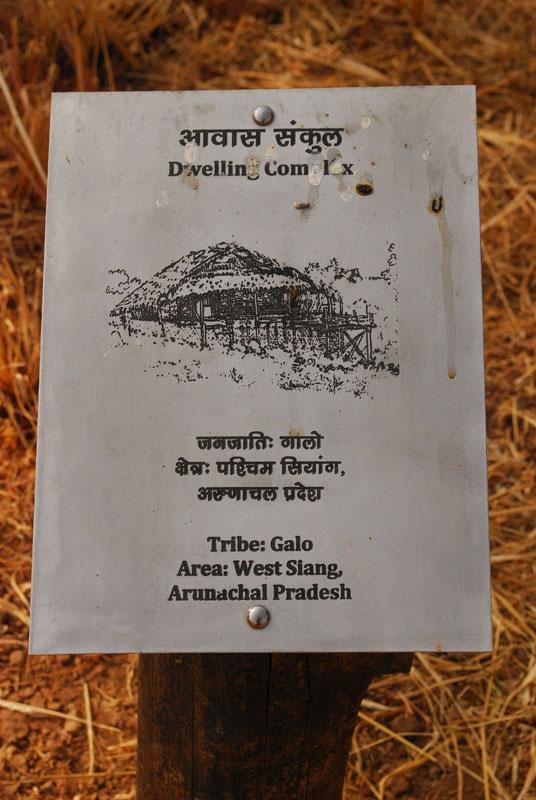 आवास संकुल
Dwelling Complex
जनजातिः गालो
क्षेत्रः पश्चिम सियांग,
अरुणाचल प्रदेश
Tribe: Galo
Area: West Siang,
Arunachal Pradesh